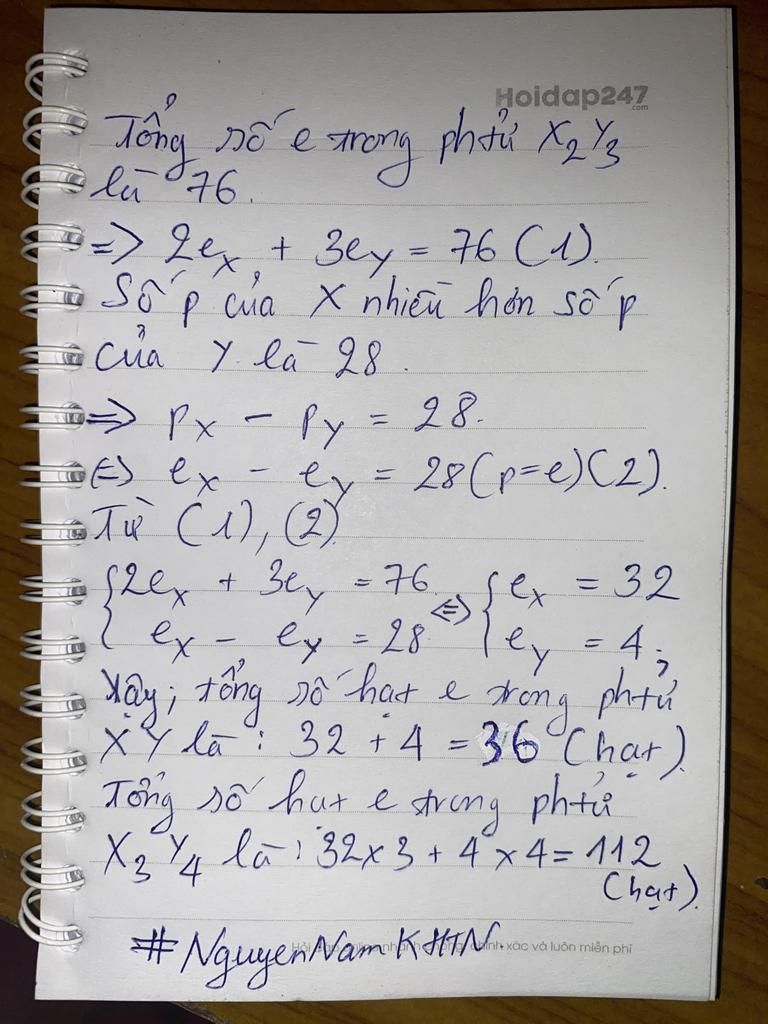 Hoidap247
.com
Tổng số e trong phtử X₂Y₃
là 76.
=> 2eₓ + 3eY = 76 (1).
Số p của X nhiều hơn số p
của Y là 28.
=> pX - pY = 28.
<=> eX - eY = 28 (p=e) (2).
Từ (1), (2)
{2eX + 3eY = 76 <=> {eX = 32
eX - eY = 28 eY = 4;
Vậy; tổng số hạt e trong phtử
XY là: 32 + 4 = 36 (hạt).
Tổng số hạt e trong phtử
X₃Y₄ là: 32x3 + 4x4 = 112
(hạt).
#NguyenNamKHTN.
xác và luôn miễn phí